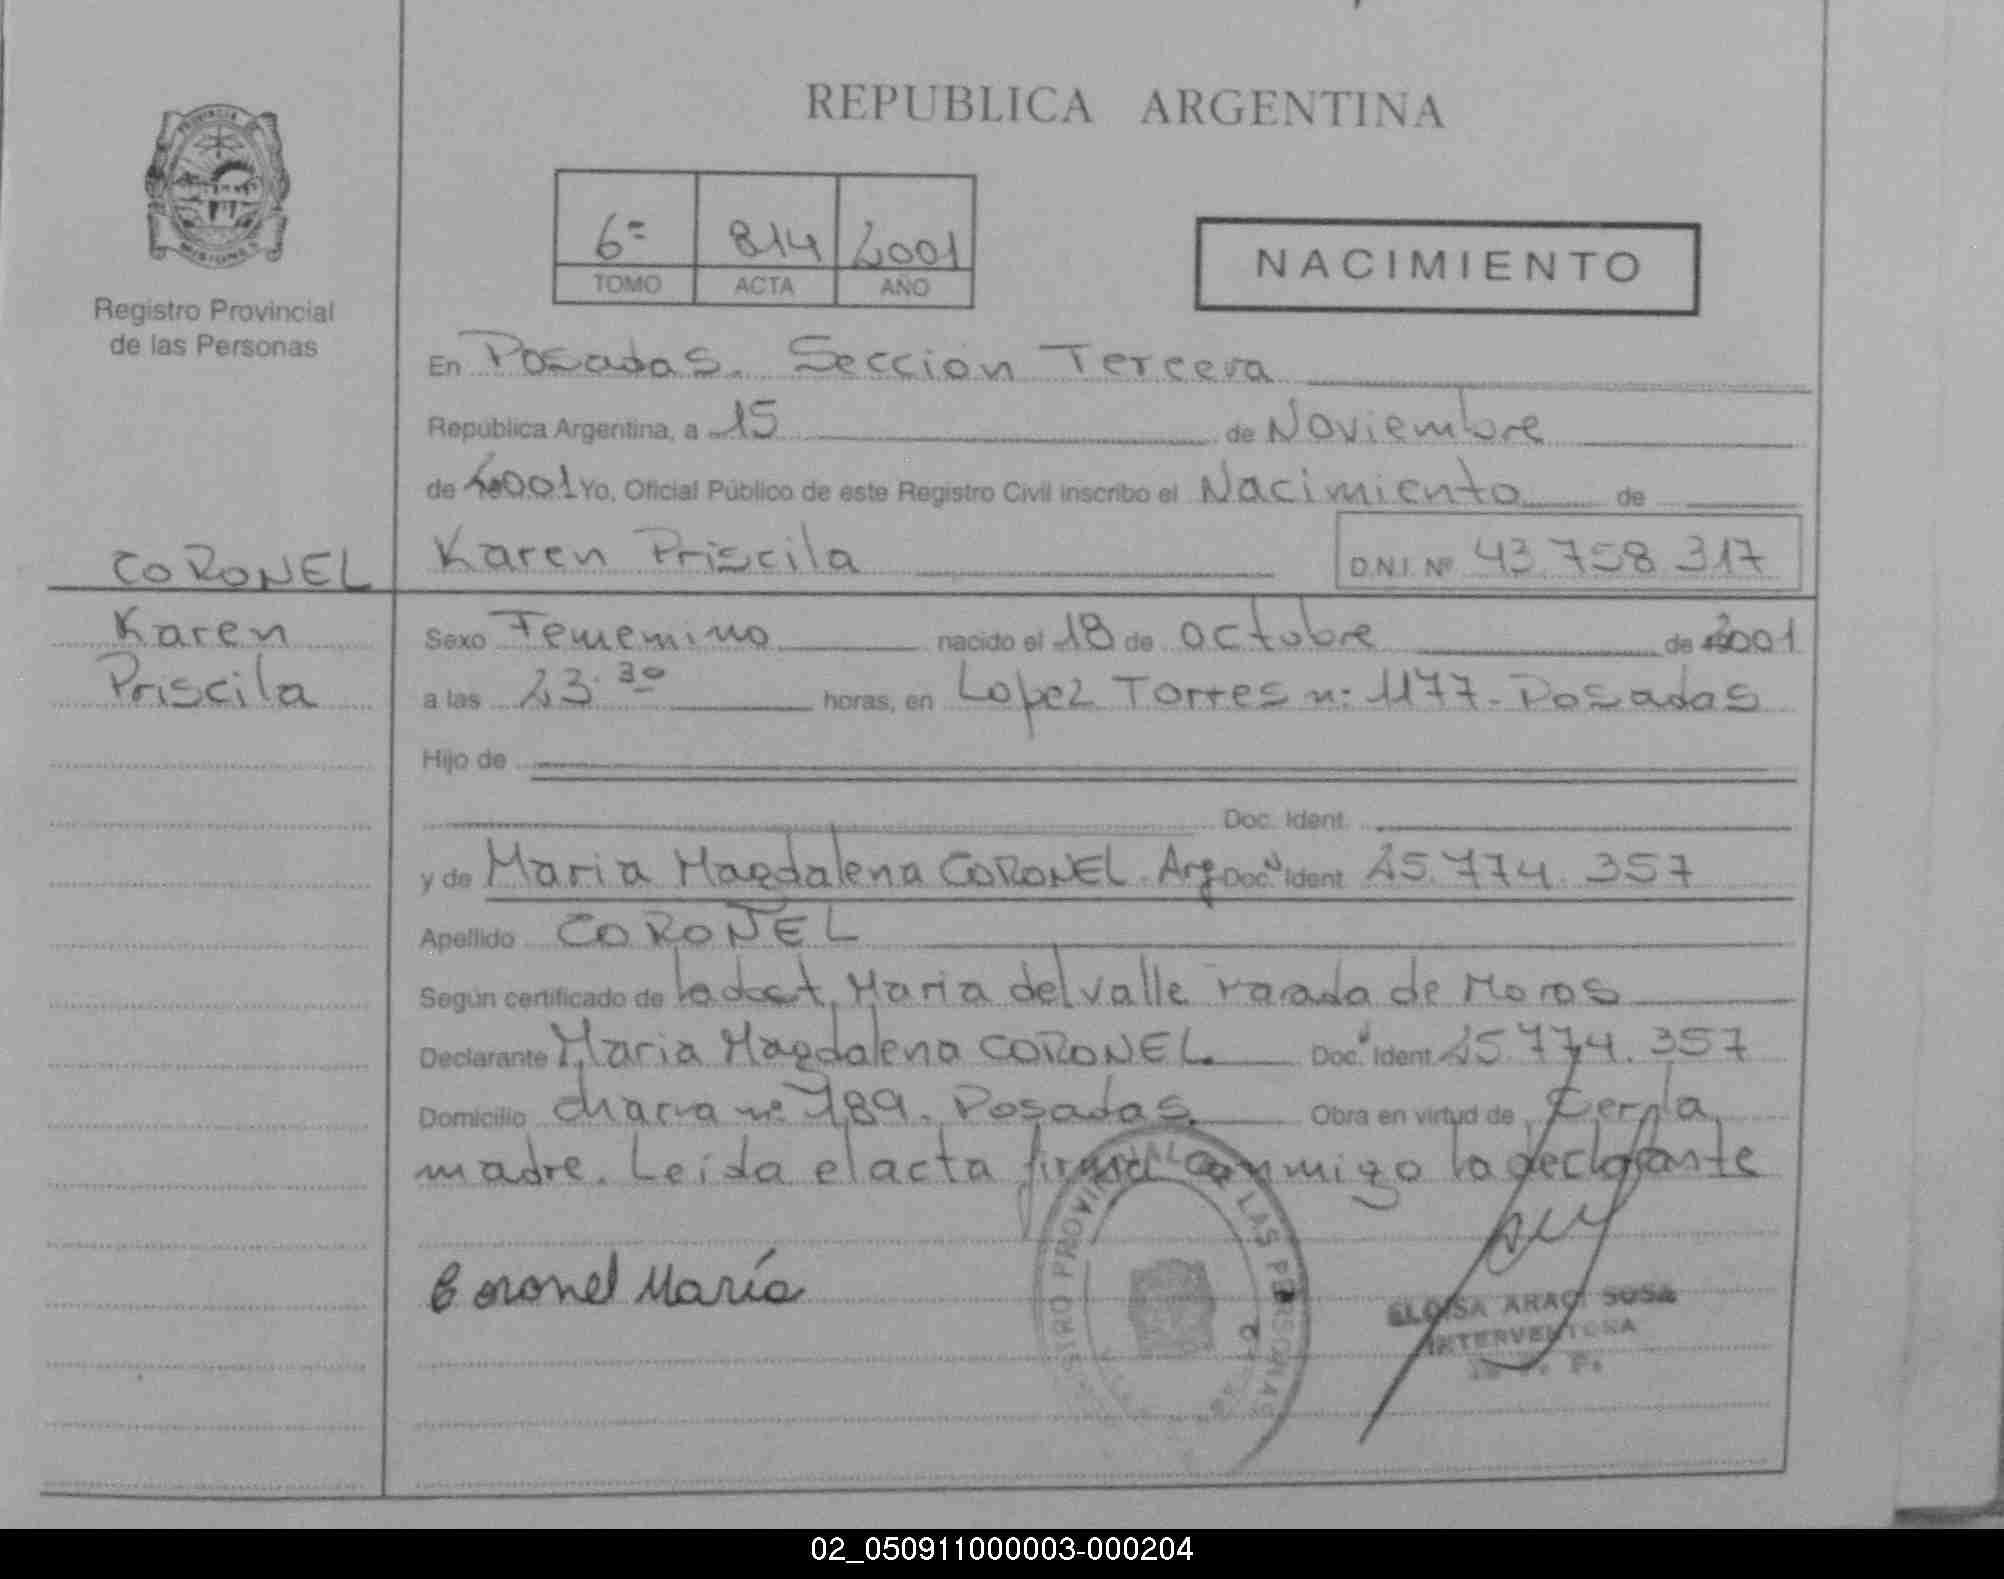 REPUBLICA ARGENTINA
PROVINCIA DE
MISIONES
Registro Provincial
de las Personas
6= 814 2001
TOMO ACTA AÑO
NACIMIENTO
En Posadas. Seccion Tercera
República Argentina, a 15 de Noviembre
de 2001 Yo, Oficial Público de este Registro Civil inscribo el Nacimiento de
CORONEL
Karen Priscila D.N.I. Nº 43.758.317
Karen
Priscila
Sexo Femenino nacido el 18 de octubre de 2001
a las 23.30 horas, en Lopez Torres nº 1177 - Posadas
Hijo de
Doc. Ident.
y de Maria Magdalena CORONEL. Arg Doc. Ident 25.774.357
Apellido CORONEL
Según certificado de la obst. Maria del valle de Moros
Declarante Maria Magdalena CORONEL. Doc. Ident. 25.774.357
Domicilio chacra nº 189. Posadas. Obra en virtud de Ser la
madre. Leida el acta firma conmigo la declarante
Coronel María
REGISTRO PROVINCIAL DE LAS PERSONAS
ELOISA ARACI SOSA
INTERVENTORA
02_050911000003-000204